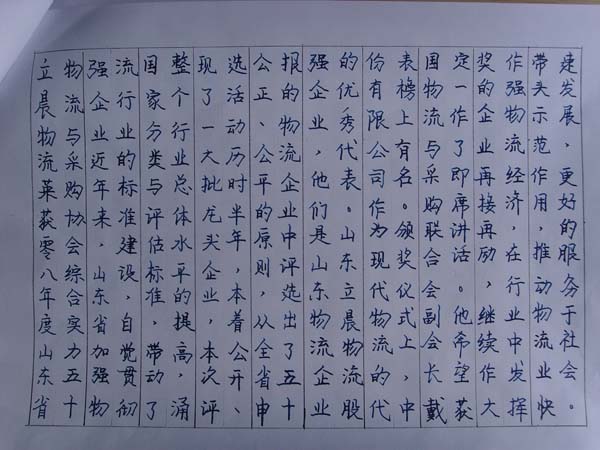 立晨物流荣获零八年度山东省
物流与采购协会综合实力五十
强企业近年来，山东省加强物
流行业的标准建设，自觉贯彻
国家分类与评估标准，带动了
整个行业总体水平的提高，涌
现了一大批龙头企业，本次评
选活动历时半年，本着公开、
公正、公平的原则，从全省申
报的物流企业中评选出了五十
强企业，他们是山东物流企业
的优秀代表。山东立晨物流股
份有限公司作为现代物流的代
表榜上有名。颁奖仪式上，中
国物流与采购联合会副会长戴
定一作了即席讲话。他希望获
奖的企业再接再励，继续作大
作强物流经济，在行业中发挥
带头示范作用，推动物流业快
建发展，更好的服务于社会。